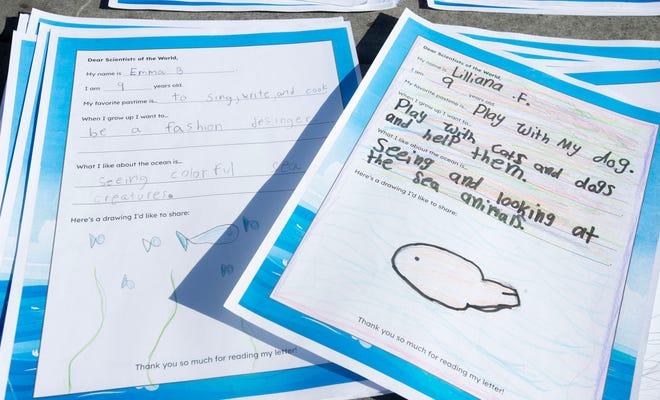 Dear Scientists of the World,
My name is Emma B
I am 9 years old.
My favorite pastime is... to sing, write, and cook
When I grow up I want to...
be a fashion desinger
What I like about the ocean is...
seeing colorful sea
creatures.
Here's a drawing I'd like to share:
Thank you so much for reading my letter!
Dear Scientists of the World,
My name is Lilliana F.
I am 9 years old.
My favorite pastime is... Play with my dog.
When I grow up I want to...
Play with cats and dogs
and help them.
What I like about the ocean is...
Seeing and looking at
the sea animals.
Here's a drawing I'd like to share:
Thank you so much for reading my letter!